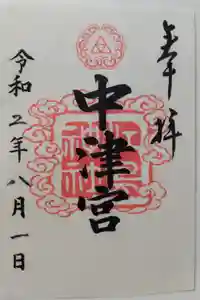 奉拝
中津宮
令和二年八月一日